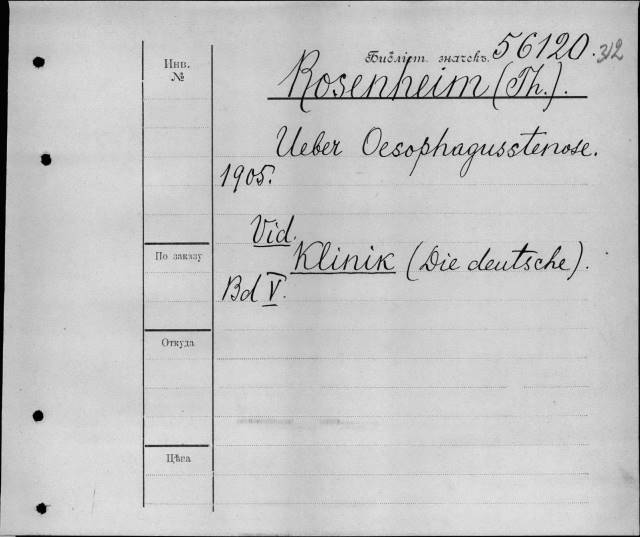 Инв.
№
Библіот. значекъ. 56120. 312
Rosenheim (Th.).
Ueber Oesophagusstenose.
1905.
Vid.
Klinik (Die deutsche).
Bd V.
По заказу
Откуда
Цѣна